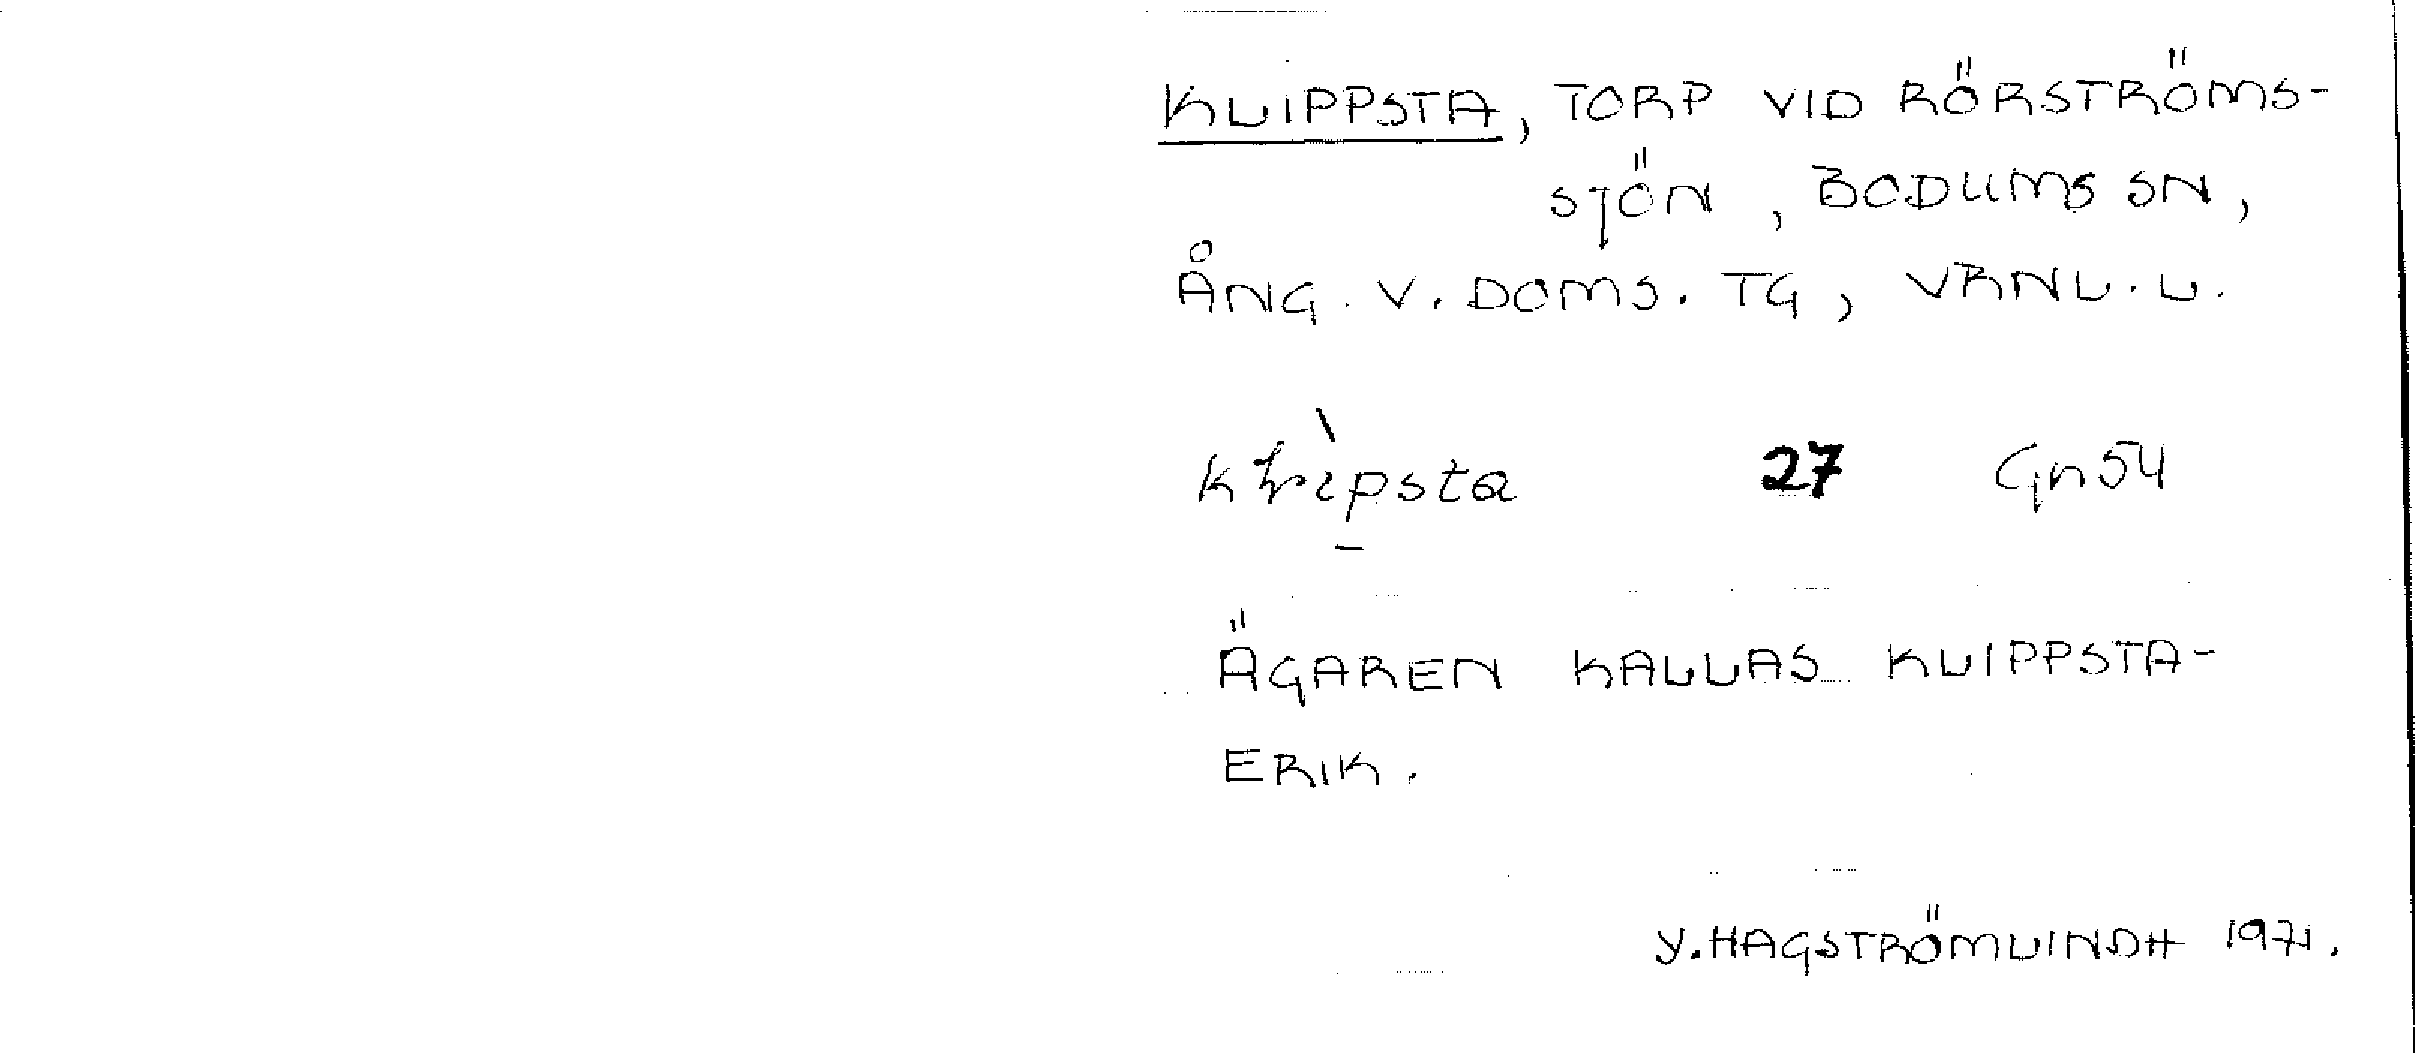 KLIPPSTA, TORP VID RÖRSTRÖMS-
SJÖN, BODUMS SN,
ÅNG. V. DOMS. TG, VRNL. L.
27 Gn54
ÄGAREN KALLAS KLIPPSTA-
ERIK.
Y. HAGSTRÖMLINDH 1971.